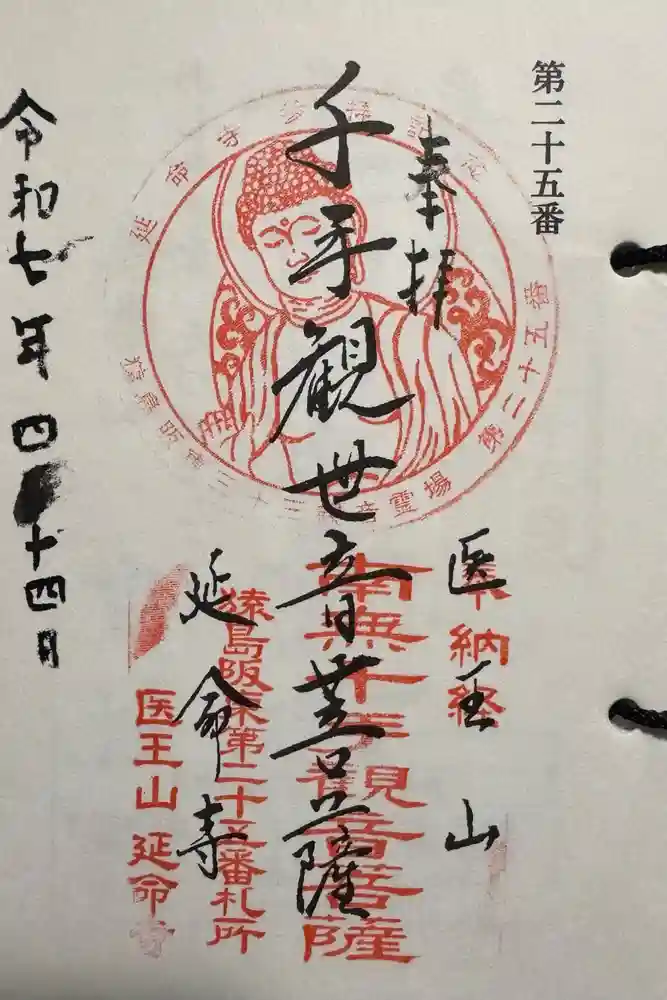 第二十五番
奉拝
医王山
千手観世音菩薩
延命寺
令和七年四月十四日
奉納経
南無千手観音菩薩
猿島阪東第二十五番札所
医王山 延命寺
第二十五番
霊場
延命寺